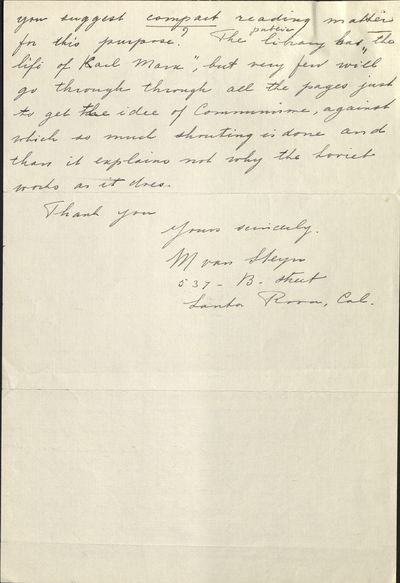 you suggest compact reading matter
for this purpose? The public library has "the
life of Karl Marx", but very few will
go through through all the pages just
to get the idee of Communisme, against
which so much shouting is done and
than it explains not why the Soviet
works as it does.
Thank you
Yours sincerely.
M van Steyn
537 - B. street
Santa Rosa, Cal.